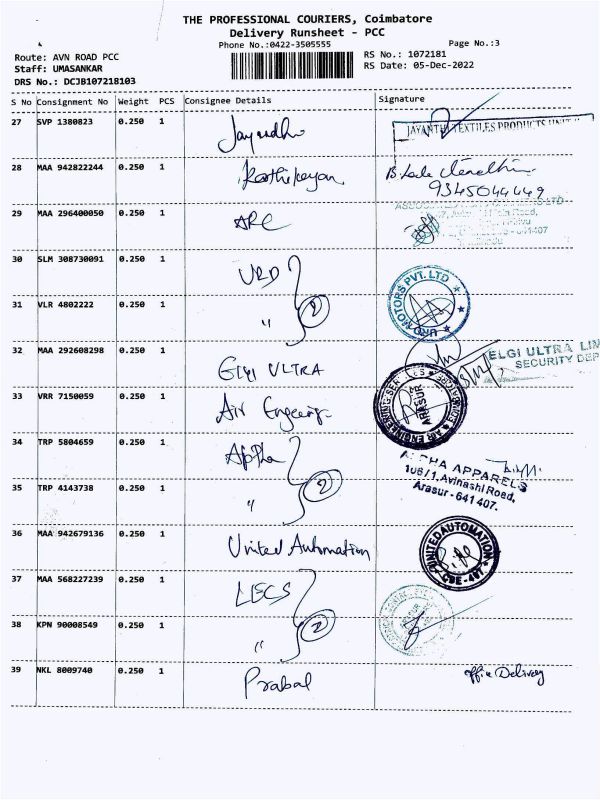 THE PROFESSIONAL COURIERS, Coimbatore
Delivery Runsheet - PCC
Phone No.:0422-3505555
Page No.:3
Route: AVN ROAD PCC
RS No.: 1072181
Staff: UMASANKAR
RS Date: 05-Dec-2022
DRS No.: DCJB107218103
S No Consignment No Weight PCS Consignee Details Signature
27 SVP 1380823 0.250 1 JAYANTHI TEXTILES PRODUCTS UNIT
28 MAA 942822244 0.250 1 Karthikeyan
9345044449
29 MAA 296400050 0.250 1 ARC
641407
30 SLM 308730091 0.250 1 URD
2
URD MOTORS PVT. LTD
31 VLR 4802222 0.250 1 "
32 MAA 292608298 0.250 1 ELGI ULTRA ELGI ULTRA LIM
SECURITY DEP
33 VRR 7150059 0.250 1 Air Engeering AIR ENGINEERING SERVICES ARASUR
34 TRP 5804659 0.250 1 Alpha
2
ALPHA APPARELS
106/1, Avinashi Road,
Arasur - 641 407.
35 TRP 4143738 0.250 1 "
36 MAA 942679136 0.250 1 United Automation UNITED AUTOMATION CBE-407
37 MAA 568227239 0.250 1 LECS
2
38 KPN 90008549 0.250 1 "
39 NKL 8009740 0.250 1 Prabal office Delivery